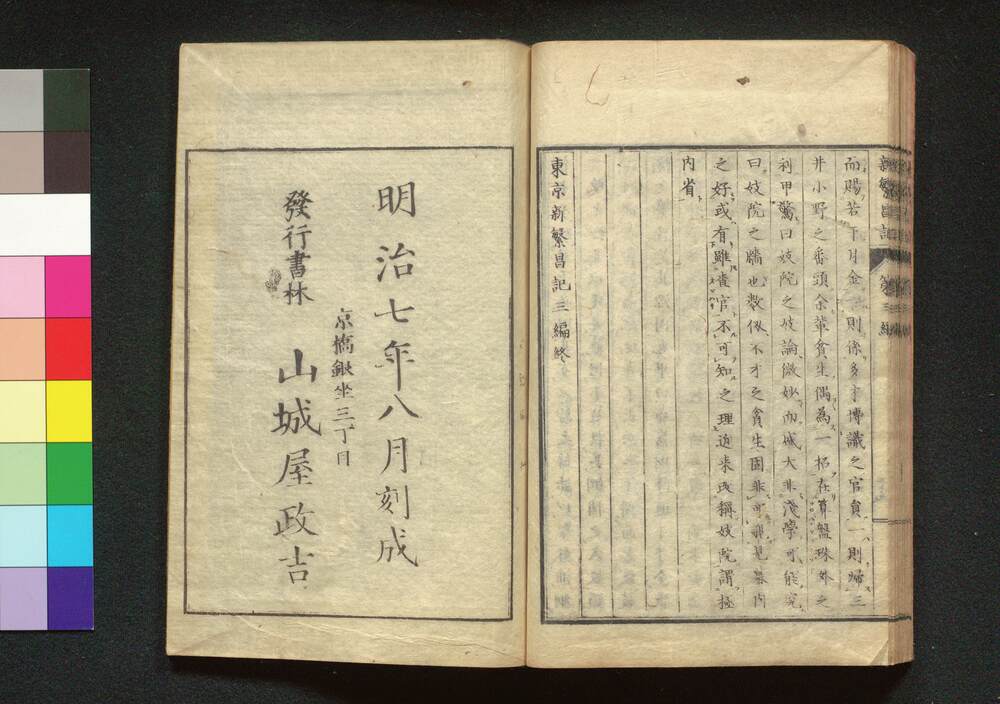 新繁昌記 第三編
而賜若干月金一則係多才博識之官員一則婦三
井小野之番頭余輩貧生偶為一招在算盤珠外之
利甲驚曰妓院之妓論微妙而城大非淺學可能究
曰妓院之牆也数似不才之貧生固非可窺見墓内
之好或有雖貴官不可知之理近来改稱妓院謂極
内省
東京新繁昌記三編終
明治七年八月刻成
京橋銀坐三丁目
發行書林
山城屋政吉